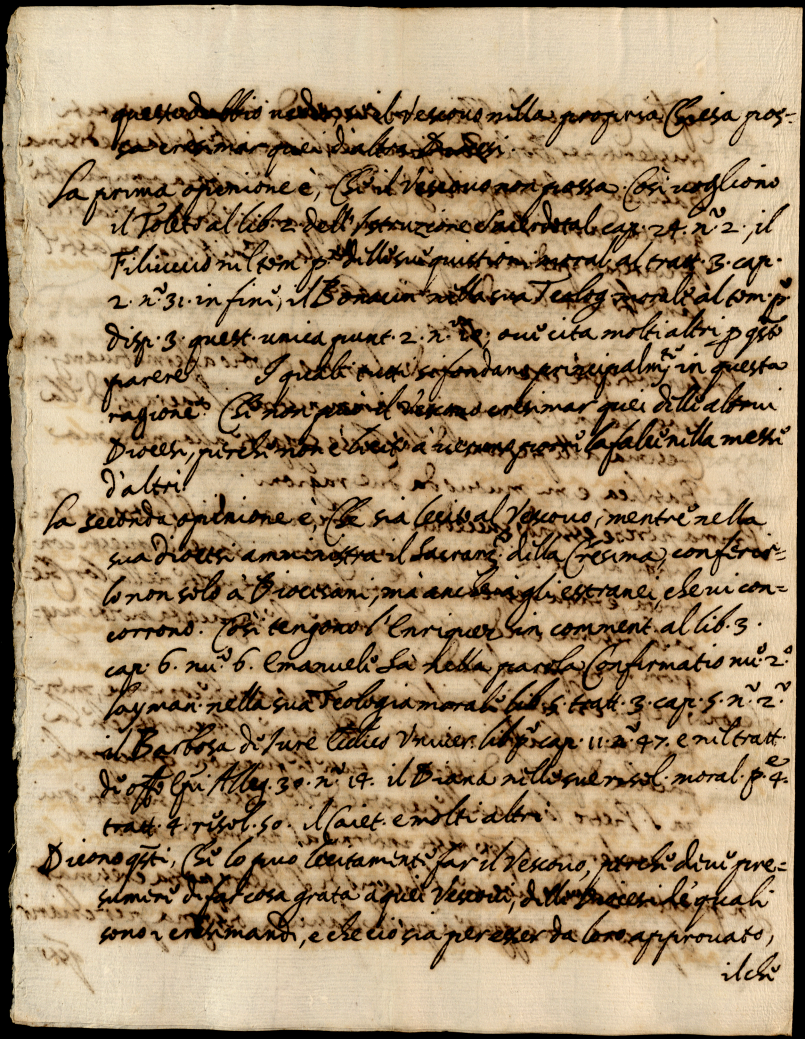 questo dubbio vedere, se il Vescovo nella propria Chiesa pos=
sa cresimar quei d'altra Diocesi.
La prima openione è, Che il Vescovo non possa. Così vogliono
il Toleto al lib. 2. dell'Istruzione Sacerdotal. cap. 24. n.º 2., il
Filiuccio nel tom. p.º delle sue quistioni moral. al tratt. 3. cap.
2. n.º 31. in fine, il Bonacin. nella sua Teolog. morale al tom. p.º
disp. 3. quest. unica punt. 2. n.º ove cita molti altri p q̃sto
parere. I quali tutti si fondano principalm.te in questa
ragione. Che non può il Vescovo cresimar quei delle altrui
Diocesi, perche non è lecito à porre la falce nella messe
d'altri.
La seconda openione è, Che sia lecito al Vescovo, mentre nella
sua diocesi amministra il Sacram.to della Cresima, conferir=
lo non solo à Diocesani, mà anche à gli estranei che vi con=
corrono. Così tengono l'Enriquez in comment. al lib. 3.
cap. 6. nu.º 6. Emanuele Sà nella parola Confirmatio nu.º 2.º
Layman nella sua Teologia morale lib. 5. tratt. 3. cap. 5. n.º 2.º
il Barbosa de Jure Eccl.ico Univer. lib. p.º cap. 11. n.º 47. e nel tratt.
de off.o Ep̃i Alleg. 30. n.º 14. il Diana nelle sue resol. moral. p.e 4.
tratt. 4. resol. 50. il Caiet. e molti altri
Dicono q̃sti, Che lo puo lecitamente far il Vescovo, perche deve pre=
sumere di far cosa grata à quei Vescovi, delle Diocesi de' quali
sono i cresimandi, e che ciò sia per esser da loro approvato,
il che